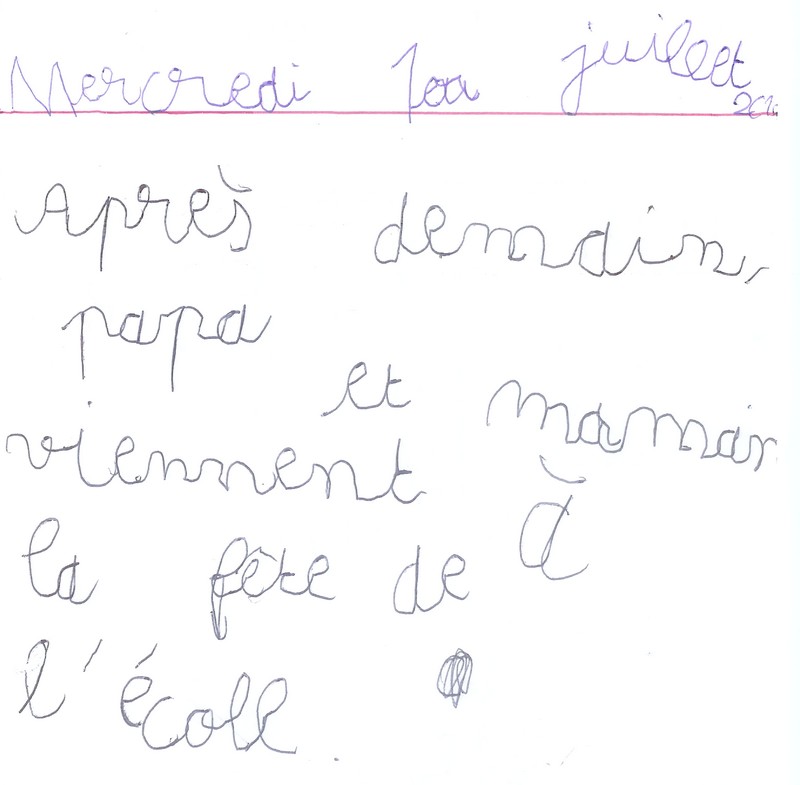 Mercredi juillet
Après demain,
papa et maman
viennent à
la fête de
l'école.